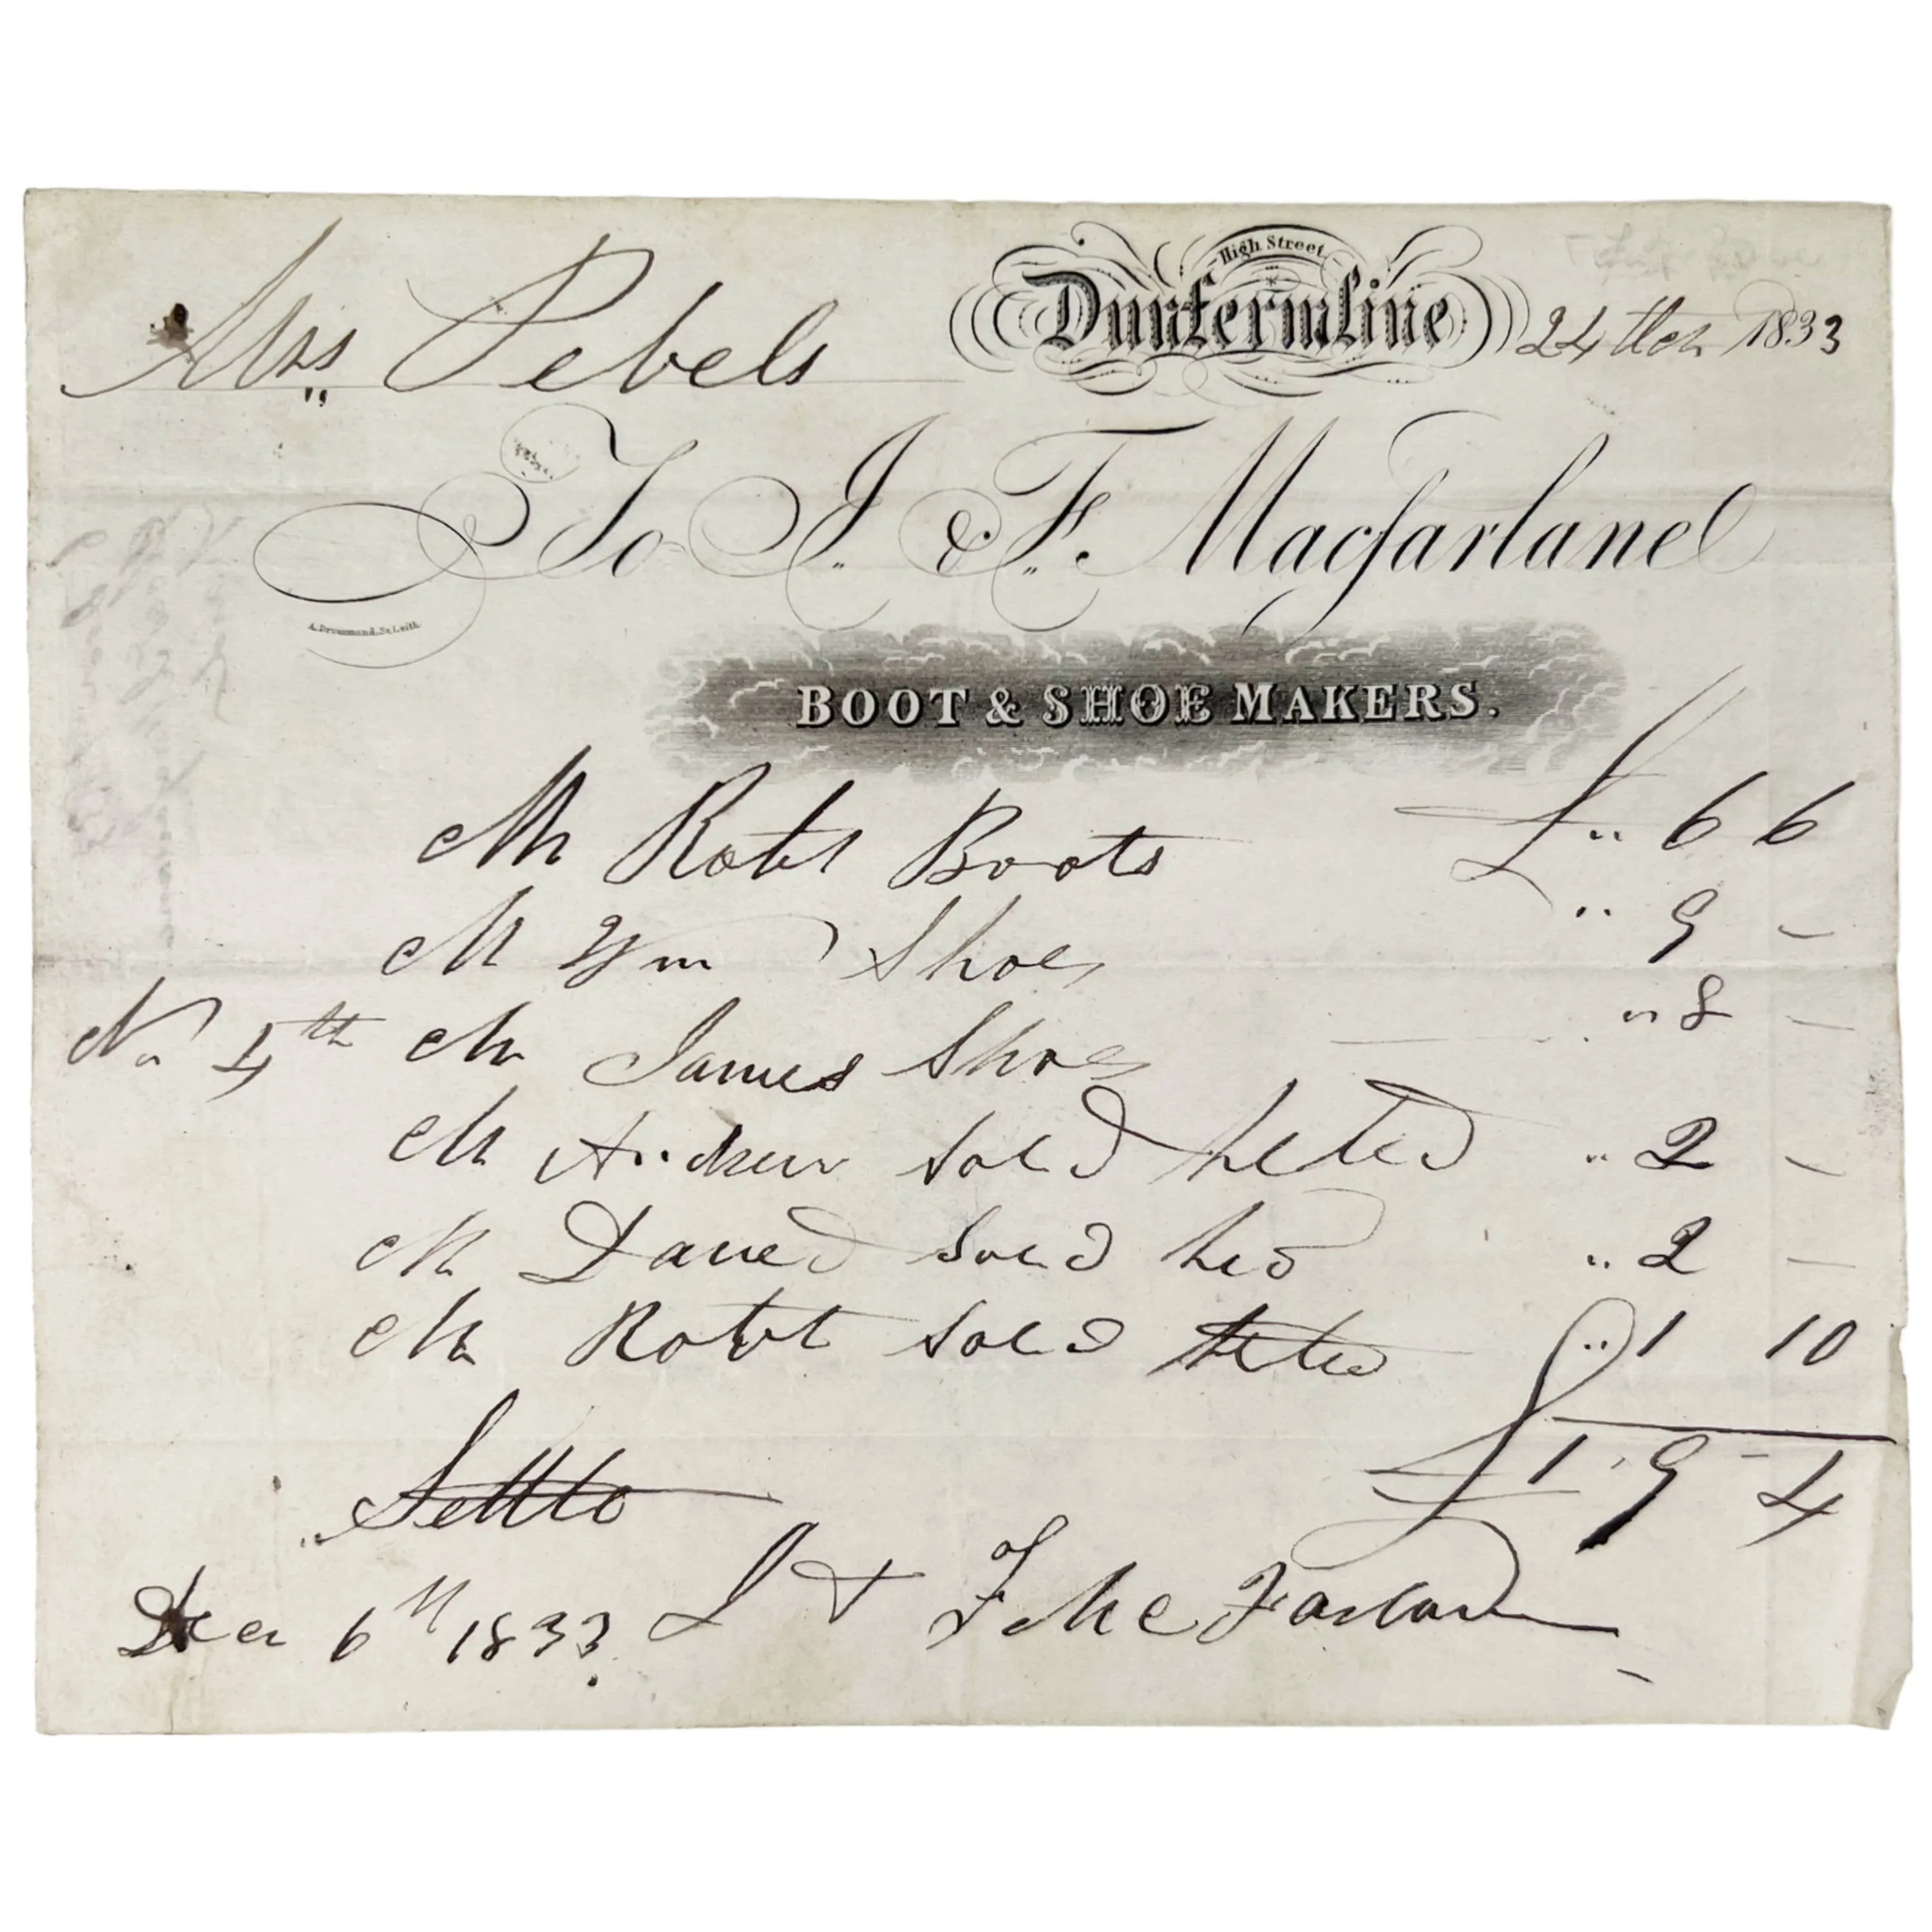 High Street
Mrs Pebels Dunfermline 24th 1833
To J. & F. Macfarlane
A. Drummond, Sc. Leith
BOOT & SHOE MAKERS.
Mr Robt Boots £ " 6 6
Mr Wm Shoes " 9 -
No 4th Mr James Shoes " 8 -
Mr Andrew Soled heled " 2 -
Mr David Soled hed " 2 -
Mr Robt Soled heled " 1 10
£ 1 . 9 - 4
Settld
Decr 6th 1833 J & F McFarlan